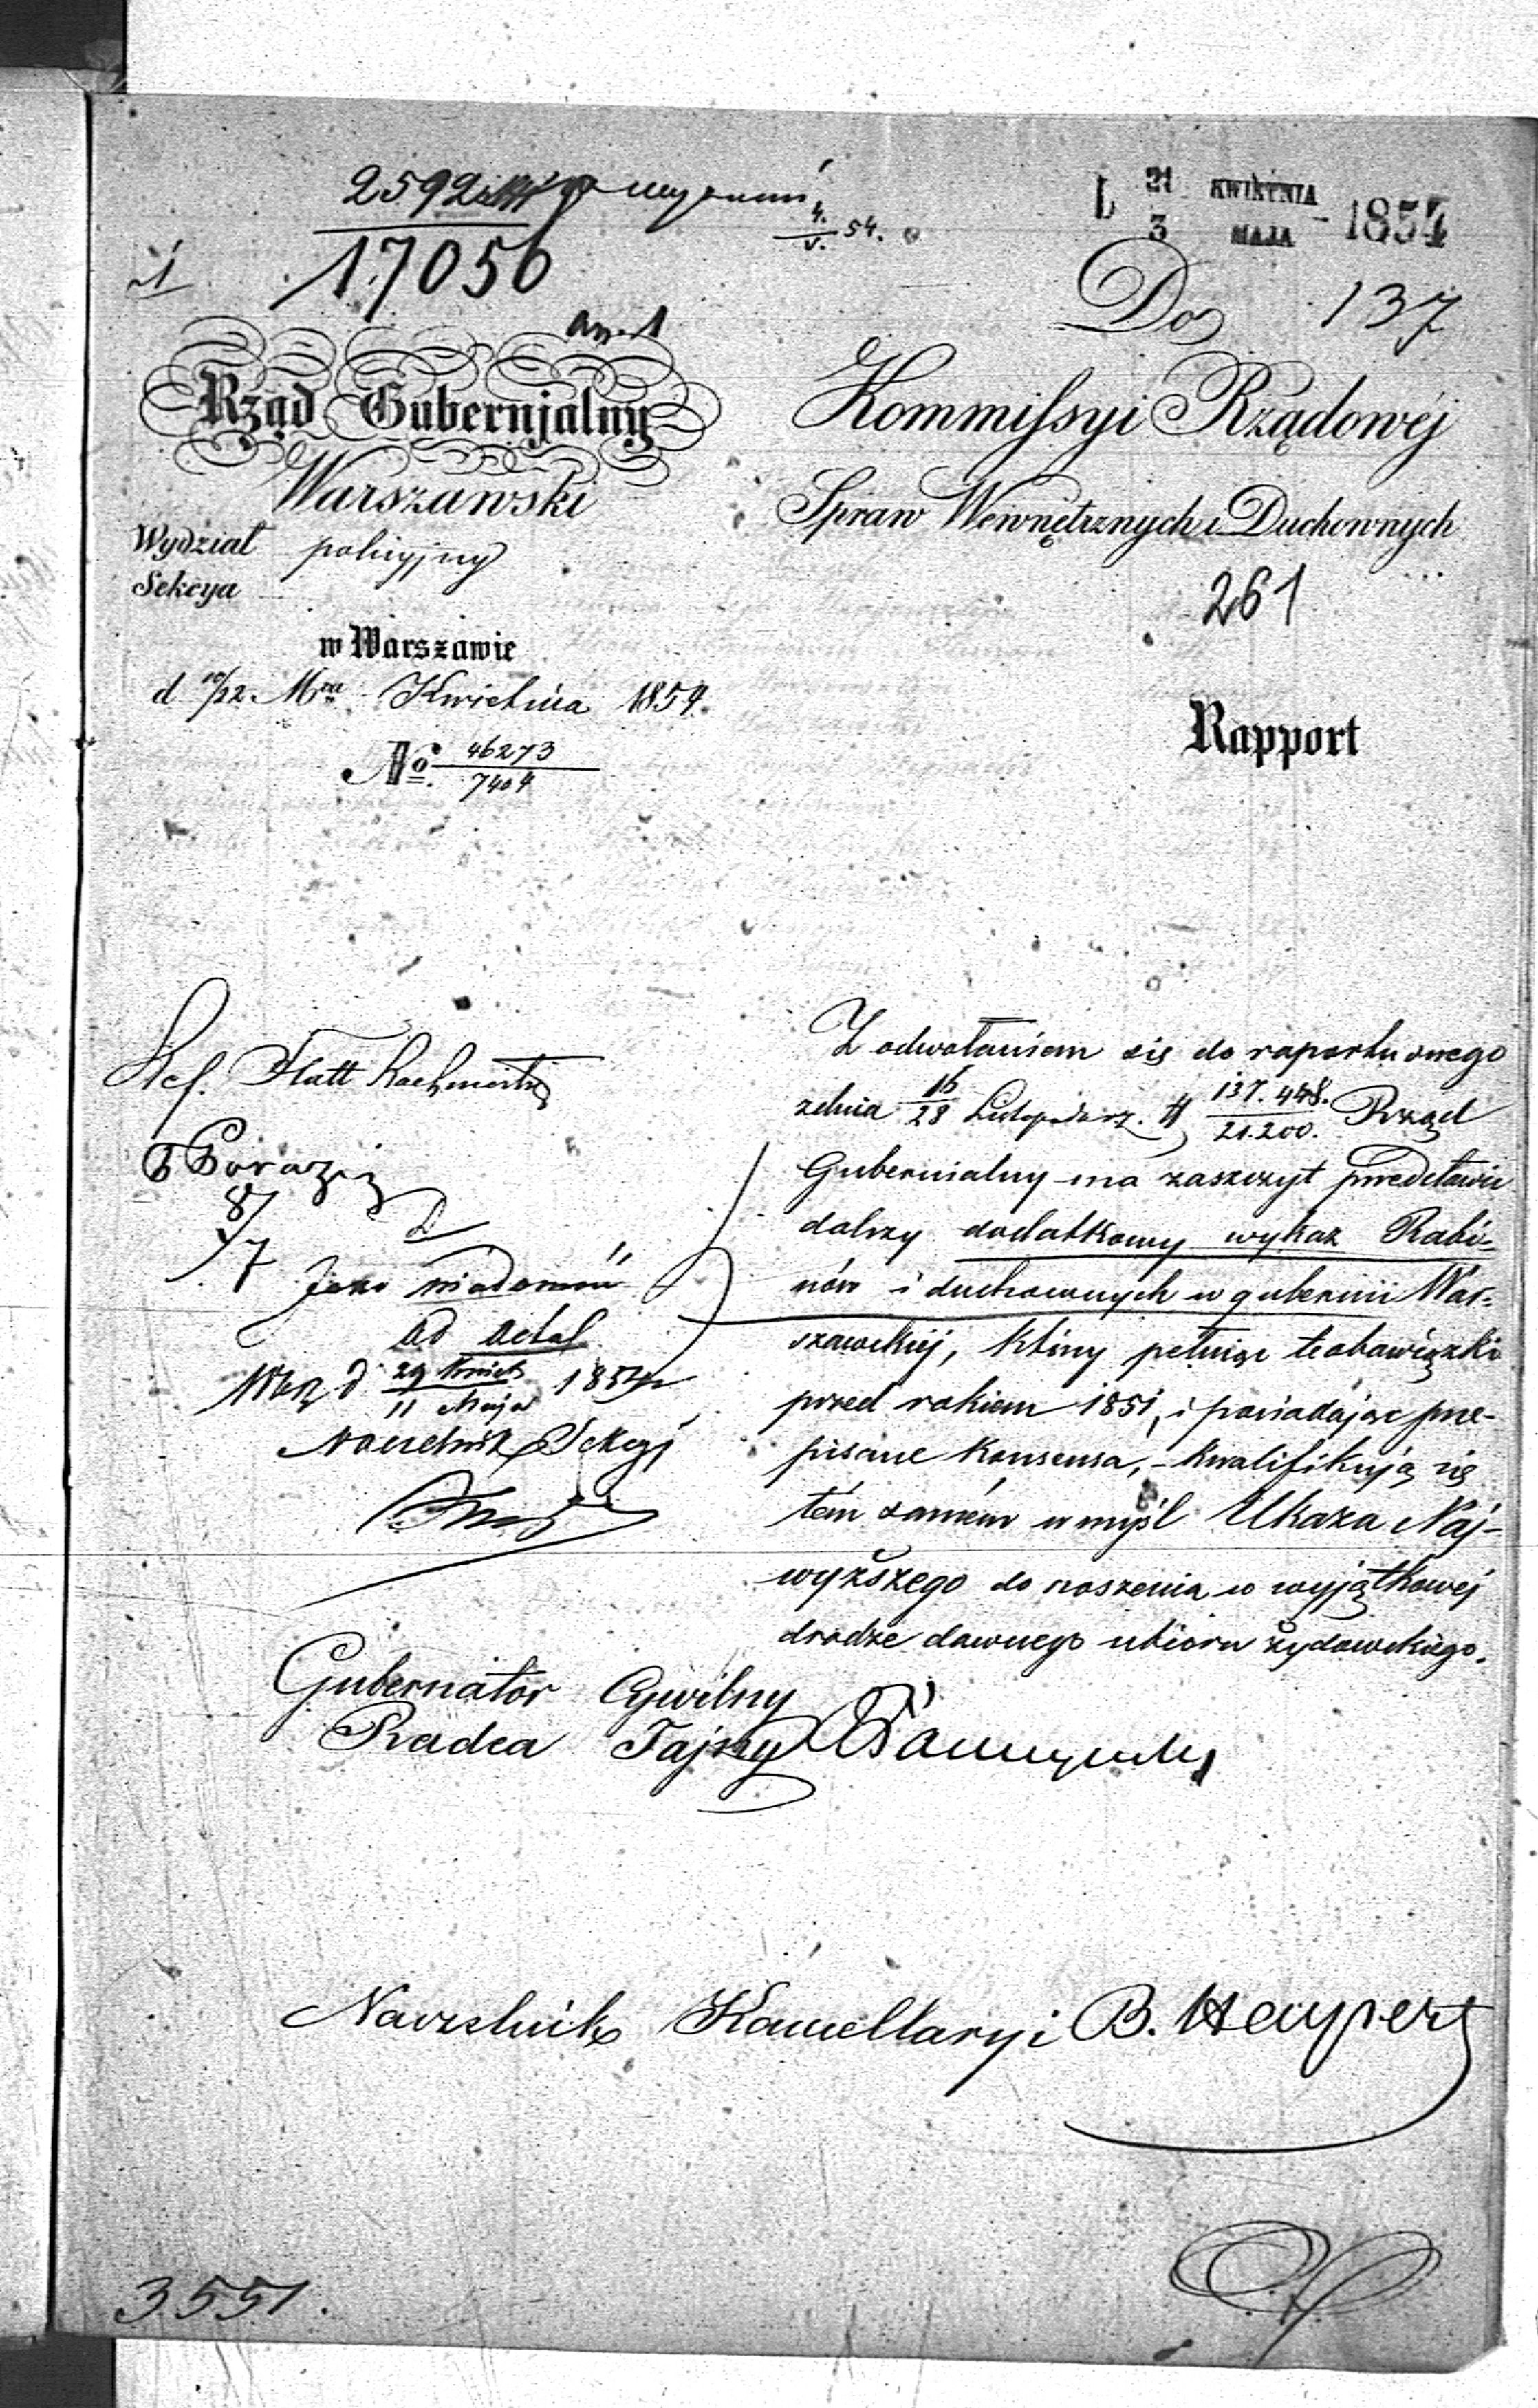 2592
17056
4. 54.
V.
L 21 KWIETNIA 1854
3 MAJA
1
Do 137
an. 1
Rząd Gubernjalny
Warszawski
Kommissyi Rządowéj
Spraw Wewnętrznych i Duchownych
Wydział policyjny
Sekcya
261
w Warszawie
d 10/22 Mca Kwietnia 1854.
No. 46273
7404
Rapport
Z odwołaniem się do raportu swego
zdnia 16/28 Listopada r.z. N 137.448. Rząd
21.200.
Gubernialny ma zaszczyt przedstawić
dalszy dodatkowy wykaz Rabi-
nów i duchownych w gubernii War-
szawskiéj, którzy pełniąc te obowiązki
przed rokiem 1851, i posiadając prze-
pisane Konsensa, - kwalifikują się
tém samém w myśl Ukaza Naj-
wyższego do noszenia w wyjątkowéj
drodze dawnego ubioru żydowskiego.
Ref. Flatt
8/7
Jako wiadomość
ad acta
d 29 Kwiet 1854
11 Maja
Naczelnik Sekcyi
Gubernator Cywilny
Radca Tajny
Naczelnik Kancellaryi B. Haypert
3551.